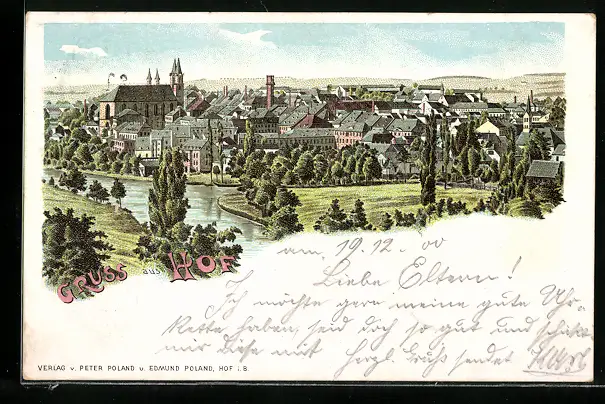 GRUSS aus HOF
am 19.12.00
Liebe Eltern!
Ich möchte gern meine gute Uhr-
kette haben, seid doch so gut und schickt
mir diese mit herzl. Gruß sendet
VERLAG v. PETER POLAND u. EDMUND POLAND, HOF i. B.